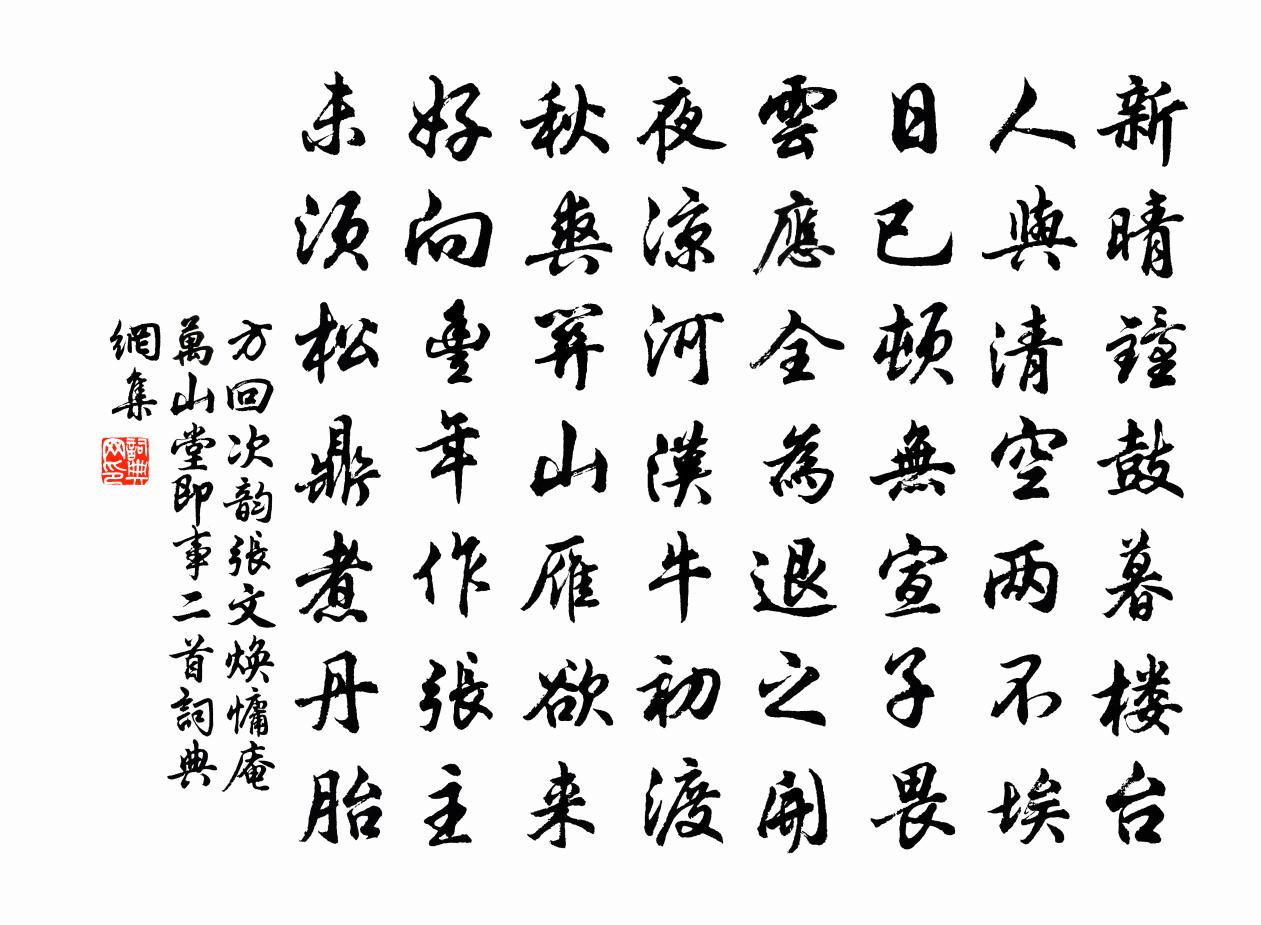 新晴鐘鼓暮楼台
人與清空两不埃
日已頓無宣子畏
雲應全為退之開
夜涼河漢牛初渡
秋爽關山雁欲来
好向豊年作張主
未須松鼎煮丹胎
方回次韵張文焕慵庵
萬山堂即事二首詞典
網集
詞典
网印